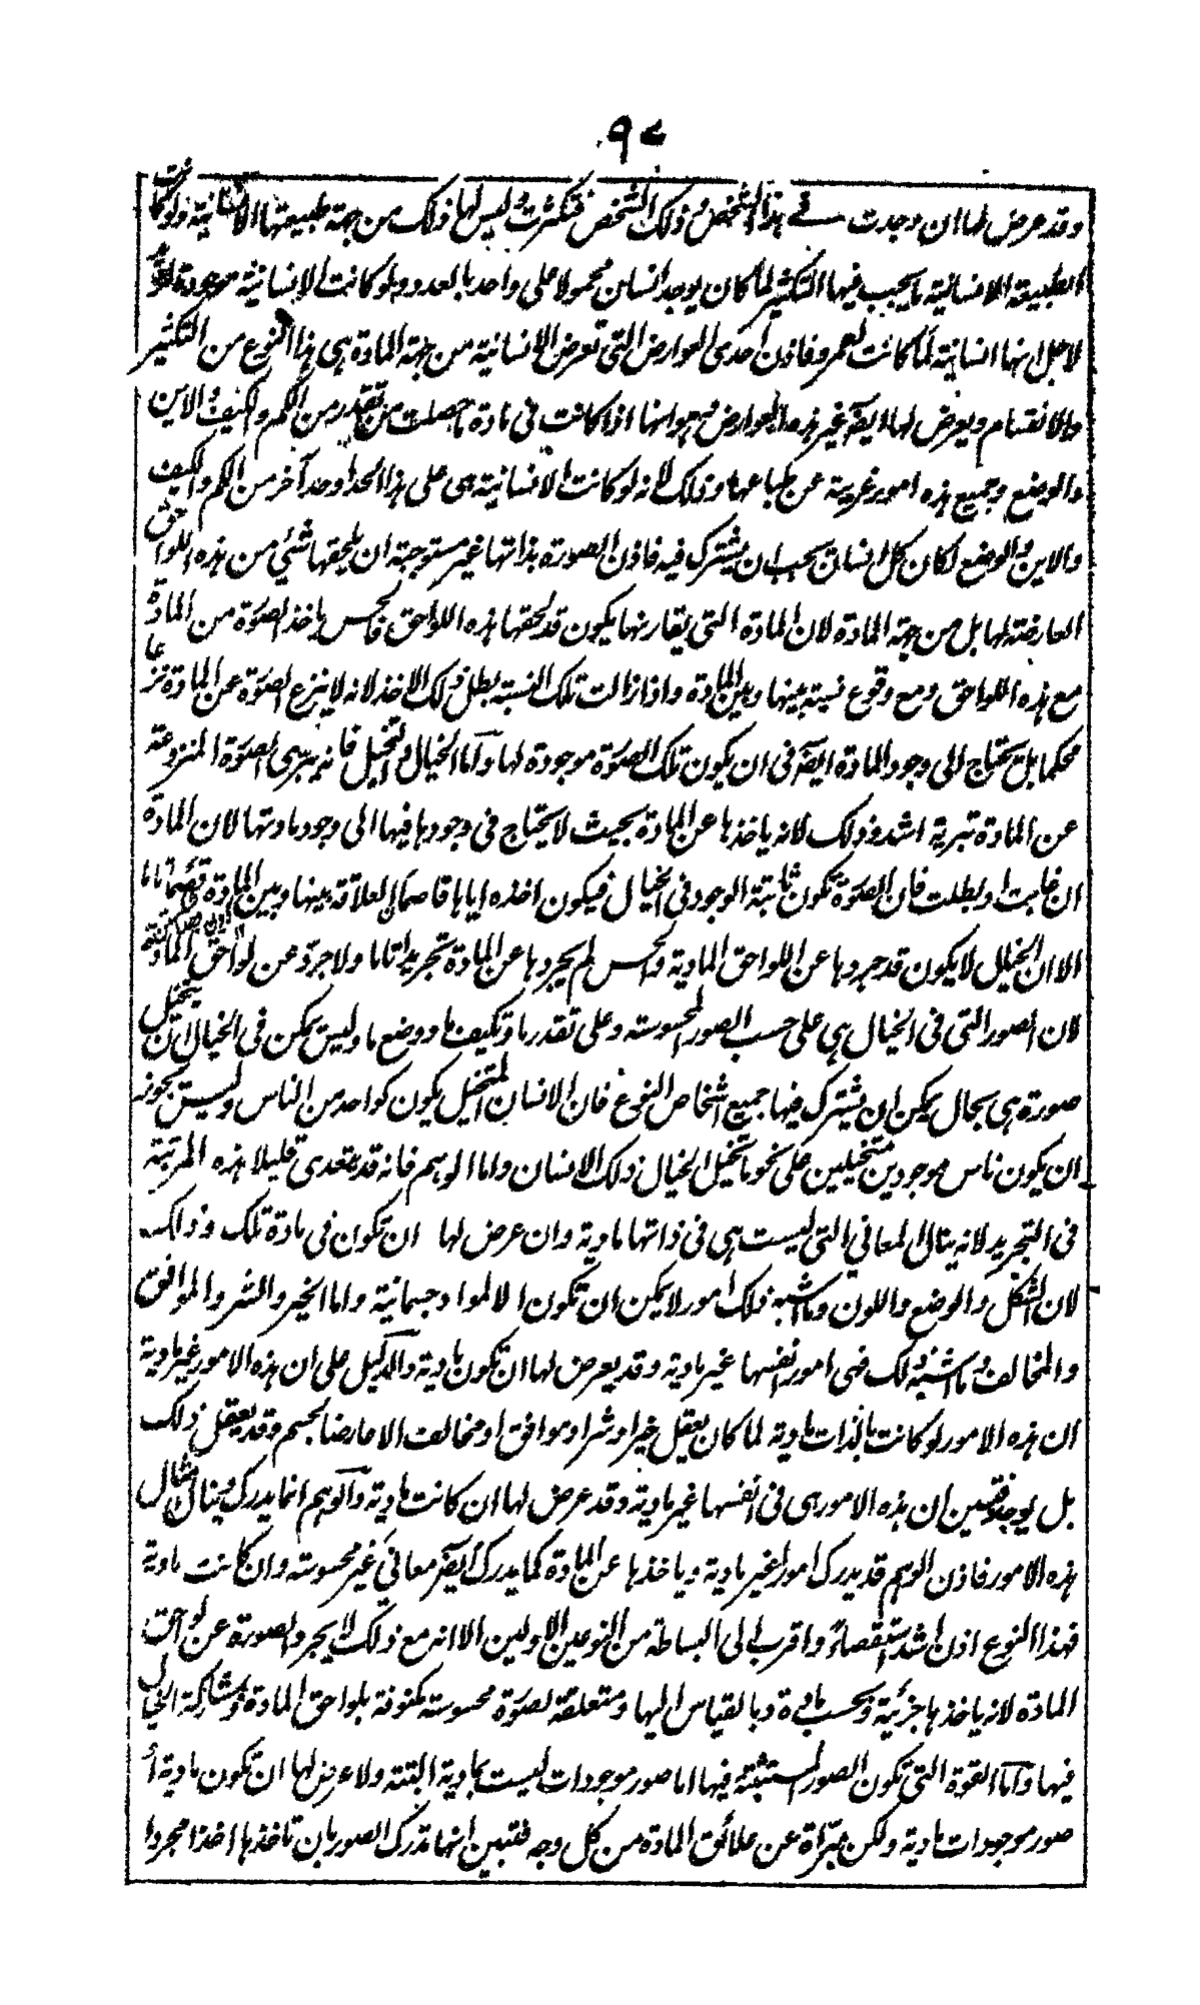 ٩٧
وقد عرض لها ان وجدت في هذا الشخص وذلك الشخص فتكثرت وليس لها ذلك من جهة طبيعتها الانسانية ولو كانت
الطبيعة الانسانية ما يجب فيها التكثير لما كان يوجد انسان محمولا على واحد بالعدد ولو كانت الانسانية موجودة لزيد
لاجل انها انسانية لما كانت لعمرو فاذن احدى العوارض التي تعرض الانسانية من جهة المادة هي هذا النوع من التكثير
والانقسام ويعرض لها ايضا غير هذه العوارض وهو انها اذا كانت في مادة ما حصلت من تقدر من الكم والكيف والاين
والوضع وجميع هذه امور غريبة عن طباعها وذلك لانه لو كانت الانسانية هي على هذا الحد او حد آخر من الكم والكيف
والاين والوضع لكان كل انسان يجب ان يشترك فيه فاذن الصورة بذاتها غير مستوجبة ان يلحقها شئي من هذه اللواحق
العارضة لها بل من جهة المادة لان المادة التي يقارنها يكون قد لحقها هذه اللواحق فالحس ياخذ الصورة من المادة
مع هذه اللواحق ومع وقوع نسبة بينها وبين المادة واذا زالت تلك النسبة بطل ذلك الاخذ لانه لا ينزع الصورة عن المادة نزعا
محكما بل يحتاج الى وجود المادة ايضا في ان يكون تلك الصورة موجودة لها واما الخيال والتخيل فانه يبرى الصورة المنزوعة
عن المادة تبرية اشد وذلك لانه ياخذها عن المادة بحيث لا يحتاج في وجودها فيها الى وجود مادتها لان المادة
ان غابت او بطلت فان الصورة تكون ثابتة الوجود في الخيال فيكون اخذه اياها قاصما للعلاقة بينها وبين المادة قصما تاما
الا ان الخيال لا يكون قد جردها عن اللواحق المادية والحس لم يجردها عن المادة تجريدا تاما ولا جرد عن لواحق المادة
لان الصور التي في الخيال هي على حسب الصور المحسوسة وعلى تقدر ما وتكيف ما ووضع ما وليس يمكن في الخيال ان يتخيل
صورة هي بحال يمكن ان يشترك فيها جميع اشخاص النوع فان الانسان المتخيل يكون كواحد من الناس وليس يجوز
ان يكون ناس موجودين متخيلين على نحو ما تخيل الخيال ذلك الانسان واما الوهم فانه قد يتعدى قليلا هذه المرتبة
في التجريد لانه ينال المعاني التي ليست هي في ذاتها مادية وان عرض لها ان تكون في مادة تلك وذلك
لان الشكل والوضع واللون وما اشبه ذلك امور لا يمكن ان تكون الا لمواد جسمانية واما الخير والشر والموافق
والمخالف وما اشبه ذلك فهى امور انفسها غير مادية وقد يعرض لها ان تكون مادية والدليل على ان هذه الامور غير مادية
ان هذه الامور لو كانت بالذات مادية لما كان يعقل خيرا وشرا وموافق او مخالف الا عارضا لجسم وقد يعقل ذلك
بل يوجد فتبين ان هذه الامور هي في انفسها غير مادية وقد عرض لها ان كانت مادية والوهم انما يدرك وينال مثال
هذه الامور فاذن الوهم قد يدرك امورا غير مادية وياخذها عن المادة كما يدرك ايضا معاني غير محسوسة وان كانت مادية
فهذا النوع اذن اشد استقصاء واقرب الى البساطة من النوعين الاولين الا انه مع ذلك لا يجرد الصورة عن لواحق
المادة لانه ياخذها جزئية وبحسب مادة وبالقياس اليها ومتعلقة لصورة محسوسة مكنوفة بلواحق المادة وبمشاركة الخيال
فيها واما القوة التي تكون الصور المستثبتة فيها اما صور موجودات ليست بمادية البتة ولا عرض لها ان تكون مادية أو
صور موجودات مادية ولكن مبراة عن علائق المادة من كل وجه فتبين انها تدرك الصور بان تاخذها اخذا مجردا